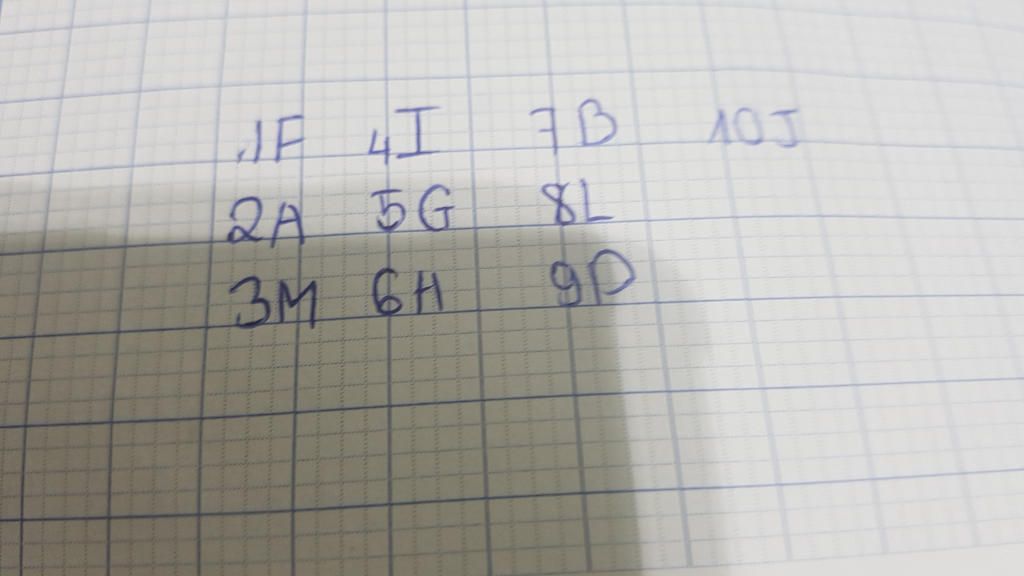 1F 4I 7B 10J
2A 5G 8L
3M 6H 9D